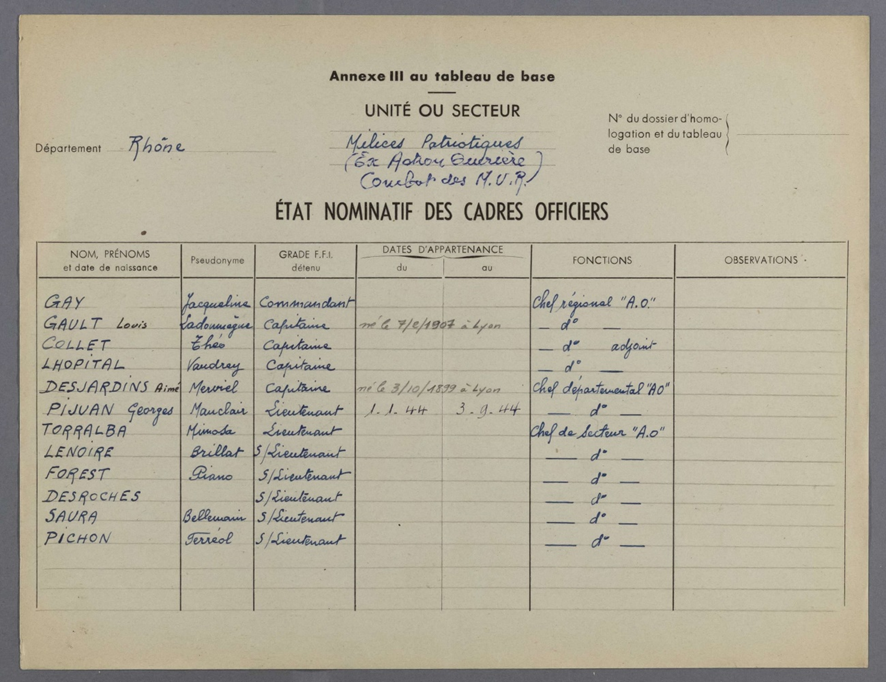 Annexe III au tableau de base
UNITÉ OU SECTEUR
N° du dossier d'homo-
logation et du tableau
de base
Département Rhône
Milices Patriotiques
(Ex Action Ouvrière)
Combat des M.U.R.
ÉTAT NOMINATIF DES CADRES OFFICIERS
NOM, PRÉNOMS et date de naissance Pseudonyme GRADE F.F.I. détenu DATES D'APPARTENANCE du au FONCTIONS OBSERVATIONS
GAY Jacqueline Commandant Chef régional "A.O."
GAULT Louis Ladoumègue Capitaine né le 7/6/1907 à Lyon — d° —
COLLET Théo Capitaine — d° adjoint
LHOPITAL Vaudrey Capitaine — d° —
DESJARDINS Aimé Merviel Capitaine né le 3/10/1899 à Lyon Chef départemental "AO"
PIJUAN Georges Mauclair Lieutenant 1.1.44 3.9.44 — d° —
TORRALBA Mimosa Lieutenant Chef de Secteur "A.O"
LENOIRE Brillat S/Lieutenant — d° —
FOREST Piano S/Lieutenant — d° —
DESROCHES S/Lieutenant — d° —
SAURA Bellemain S/Lieutenant — d° —
PICHON Terréol S/Lieutenant — d° —